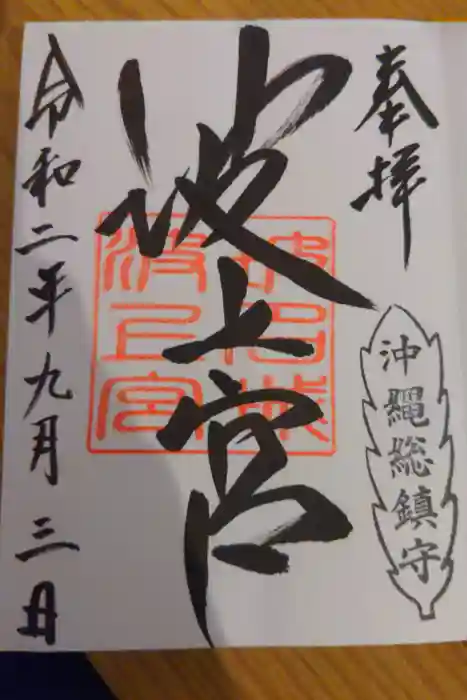 奉拝
沖縄総鎮守
波上宮
波上宮
令和二年九月三日